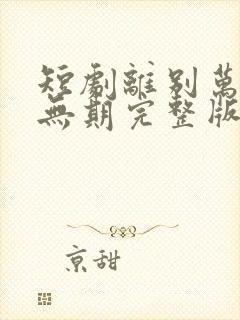 短劇離別萬
無期完整版
京甜